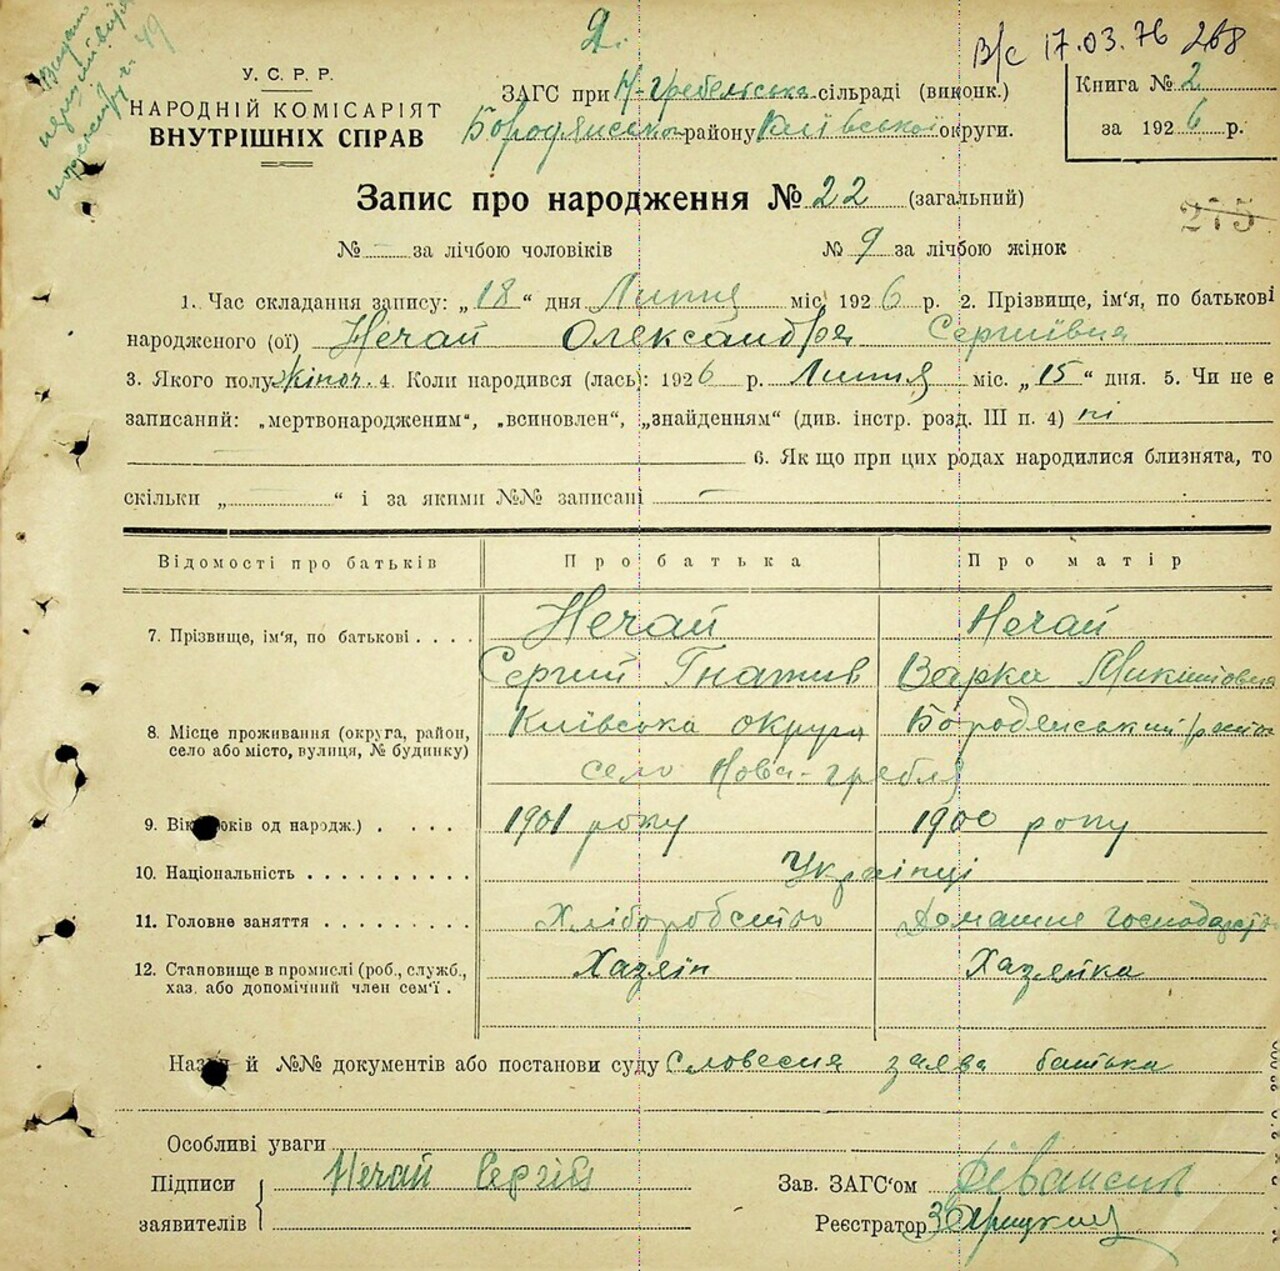 2.
В/с 17.03.76 268
У. С. Р. Р.
НАРОДНІЙ КОМІСАРІЯТ
ВНУТРІШНІХ СПРАВ
ЗАГС при Н-Гребельська сільраді (виконк.)
Бородянського району Київської округи.
Книга № 2
за 1926 р.
Запис про народження № 22 (загальний)
275
№ — за лічбою чоловіків № 9 за лічбою жінок
1. Час складання запису: „18“ дня Липня міс. 1926 р. 2. Прізвище, ім'я, по батькові
народженого (ої) Нечай Олександра Сергіївна
3. Якого полу жіноч. 4. Коли народився (лась): 1926 р. Липня міс. „15“ дня. 5. Чи не є
записаний: „мертвонародженим“, „всиновлен“, „знайденням“ (див. інстр. розд. III п. 4) ні
6. Як що при цих родах народилися близнята, то
скільки „ “ і за якими №№ записані —
Відомості про батьків Про батька Про матір
7. Прізвище, ім'я, по батькові . . . . Нечай Нечай
Сергий Гнатив Варка Микитовна
8. Місце проживання (округа, район, село або місто, вулиця, № будинку) Київська округа Бородянський район
село Нова-гребля
9. Вік років од народж.) . . . . 1901 року 1900 року
10. Національність . . . . . . . . . . Українці
11. Головне заняття . . . . . . . . . Хліборобство Домашнє господарство
12. Становище в промислі (роб., служб., Хазяїн Хазяйка
хаз. або допомічний член сем'ї .
Назви й №№ документів або постанови суду Словесна заява батька
Особливі уваги
Підписи Нечай Сергій Зав. ЗАГС'ом
заявителів Реєстратор